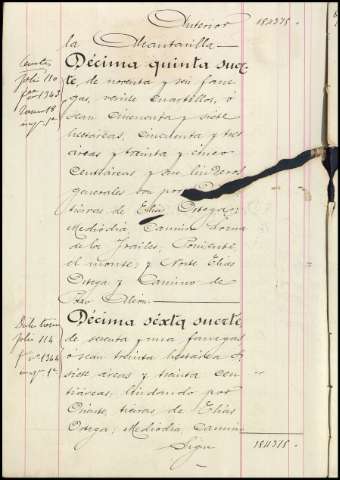 Anterior 184375.
la Alcantarilla
Décima quinta suer
te, de noventa y seis fane
gas, veinte cuartillos, ó
sean cincuenta y siete
hectáreas, cincuenta y tres
áreas y treinta y cinco
centiáreas y sus linderos
generales son por
tierras de Elías Ortega;
Mediodía, Camino
de los Frailes; Poniente,
el monte; y Norte Elías
Ortega y Camino de
folio 110
1343
Décima séxta suerte,
de sesenta y una fanegas
ó sean treinta hectáreas
siete áreas y treinta cen
tiáreas, lindando por
Oriente, tierras de Elías
Ortega; Mediodía, Camino
folio 114
1344
Sigue 184375.